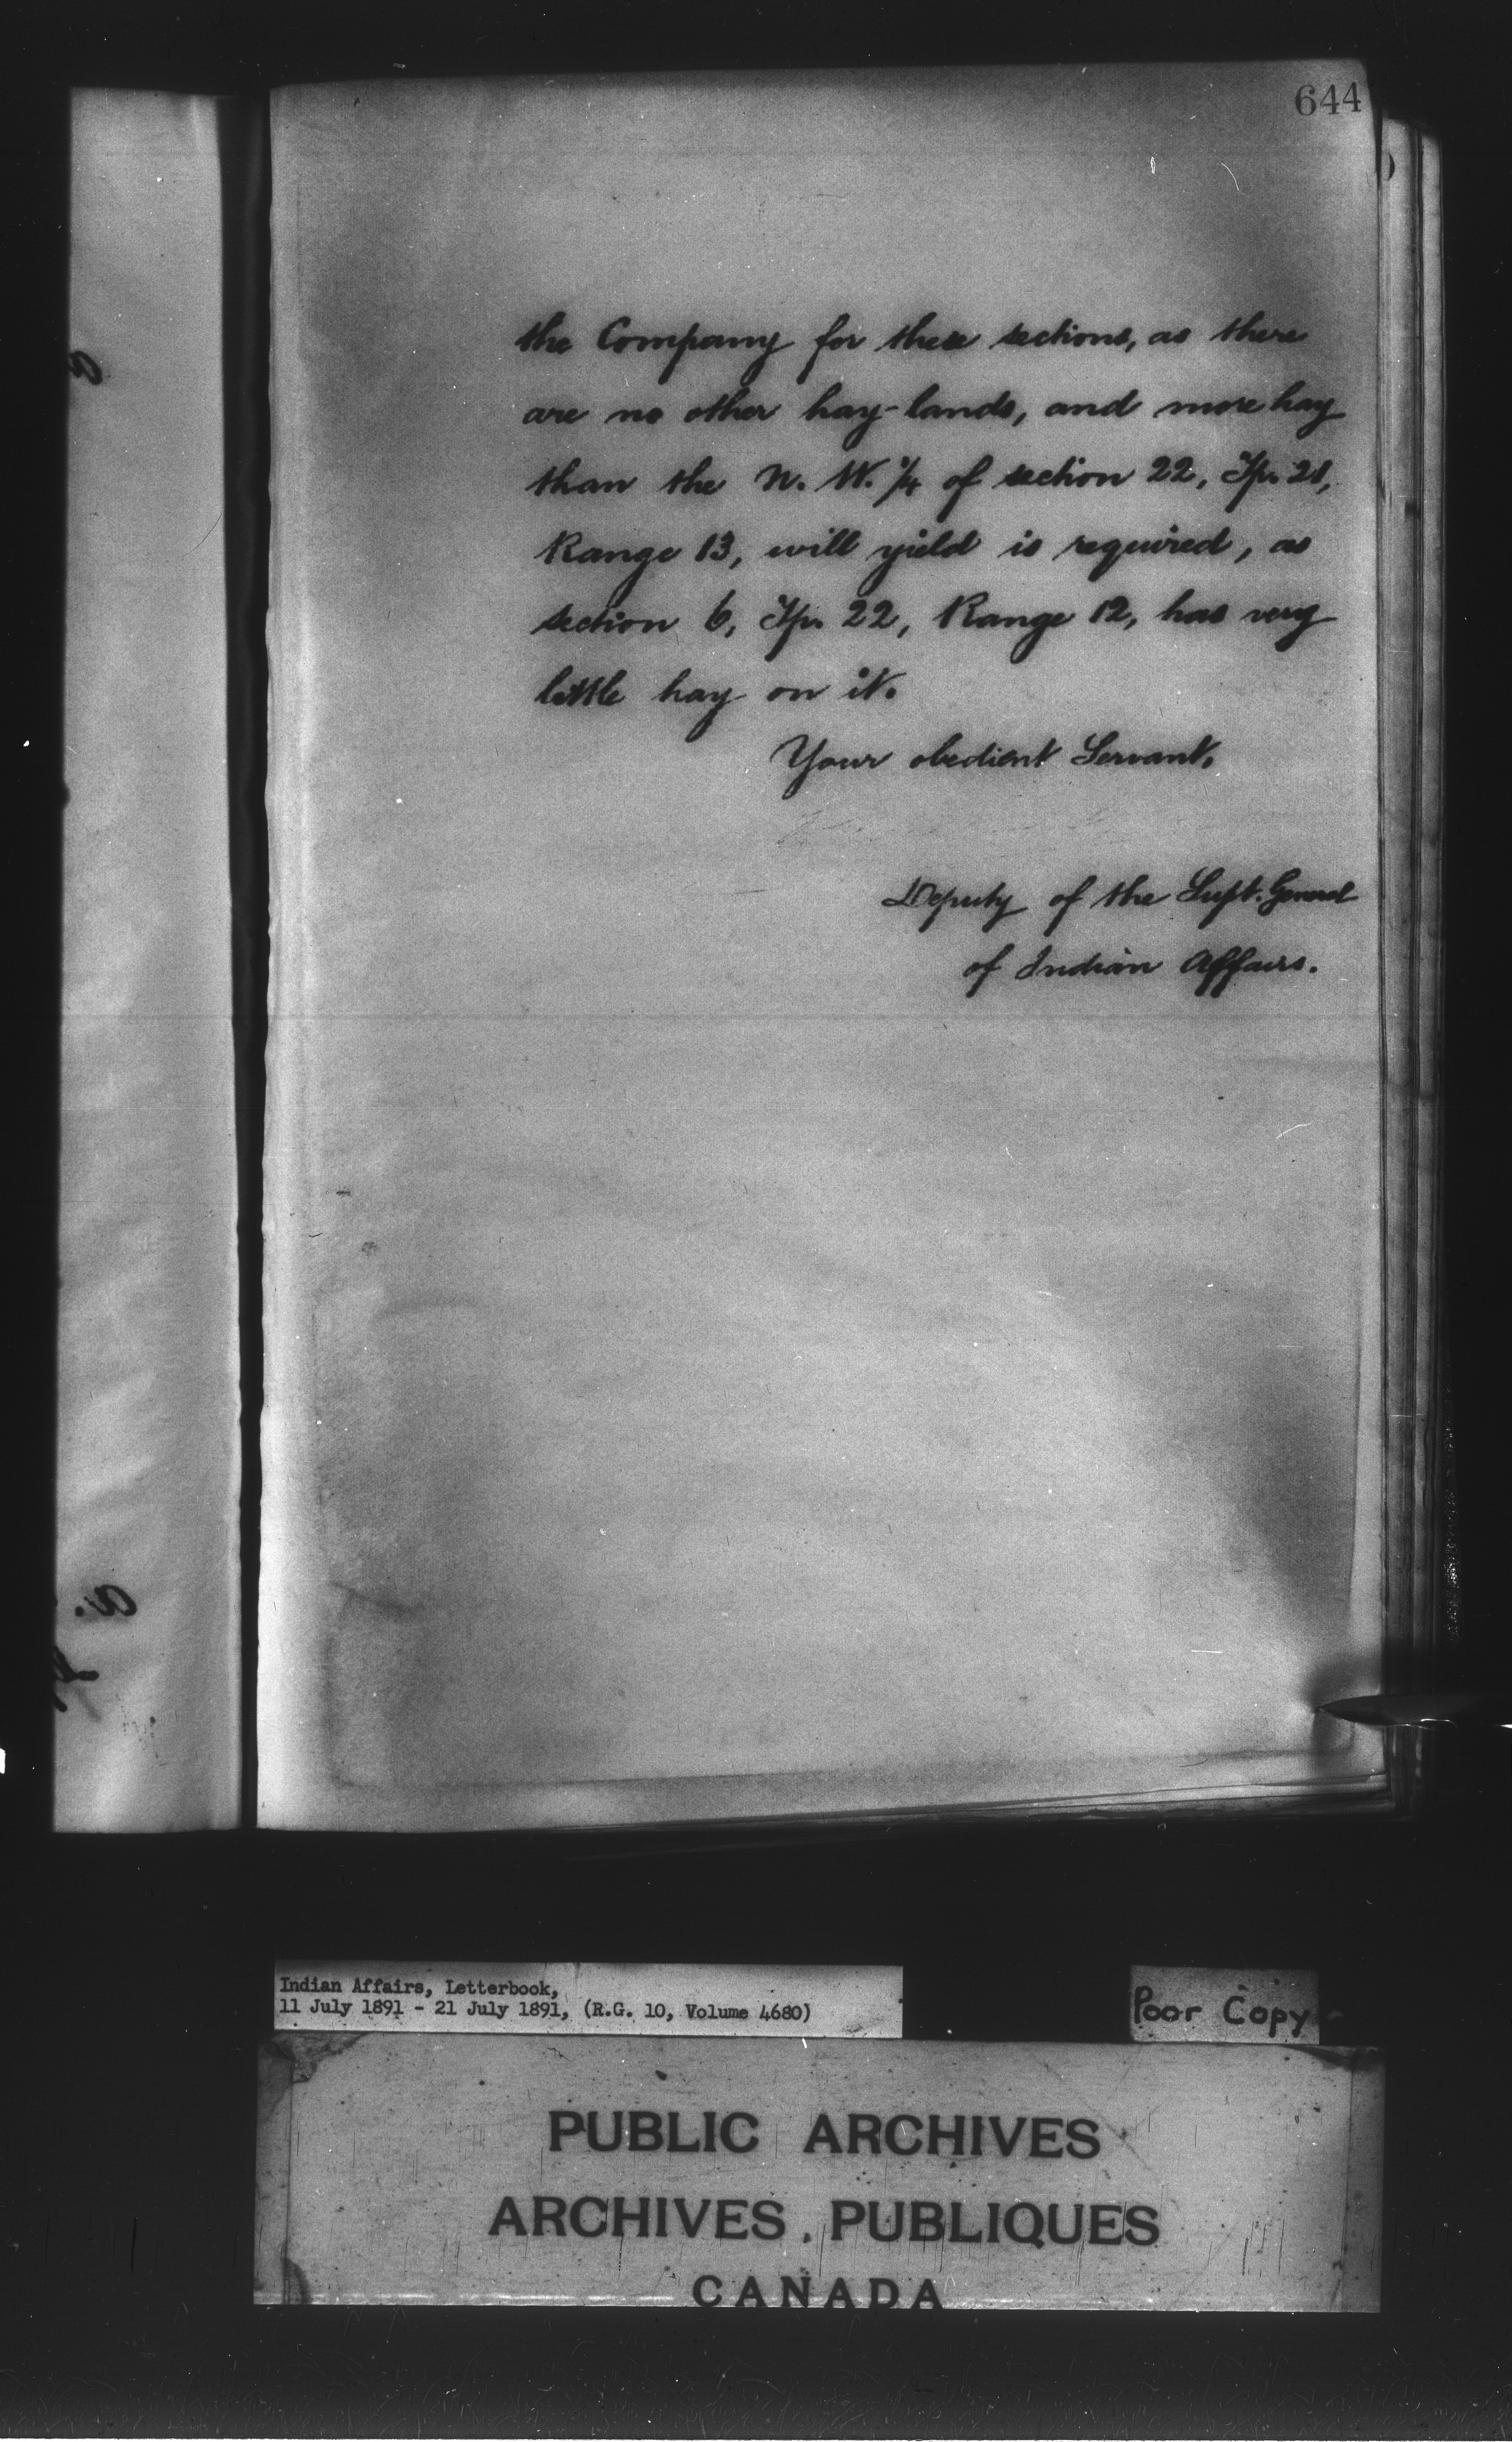 644
the Company for these sections, as there
are no other hay-lands, and more hay
than the N. W. 1/4 of section 22, Tp. 21,
Range 13, will yield is required, as
section 6, Tp. 22, Range 12, has very
little hay on it.
Your obedient Servant,
Deputy of the Supt. General
of Indian Affairs.
Indian Affairs, Letterbook,
11 July 1891 - 21 July 1891, (R.G. 10, Volume 4680)
Poor Copy
PUBLIC ARCHIVES
ARCHIVES PUBLIQUES
CANADA